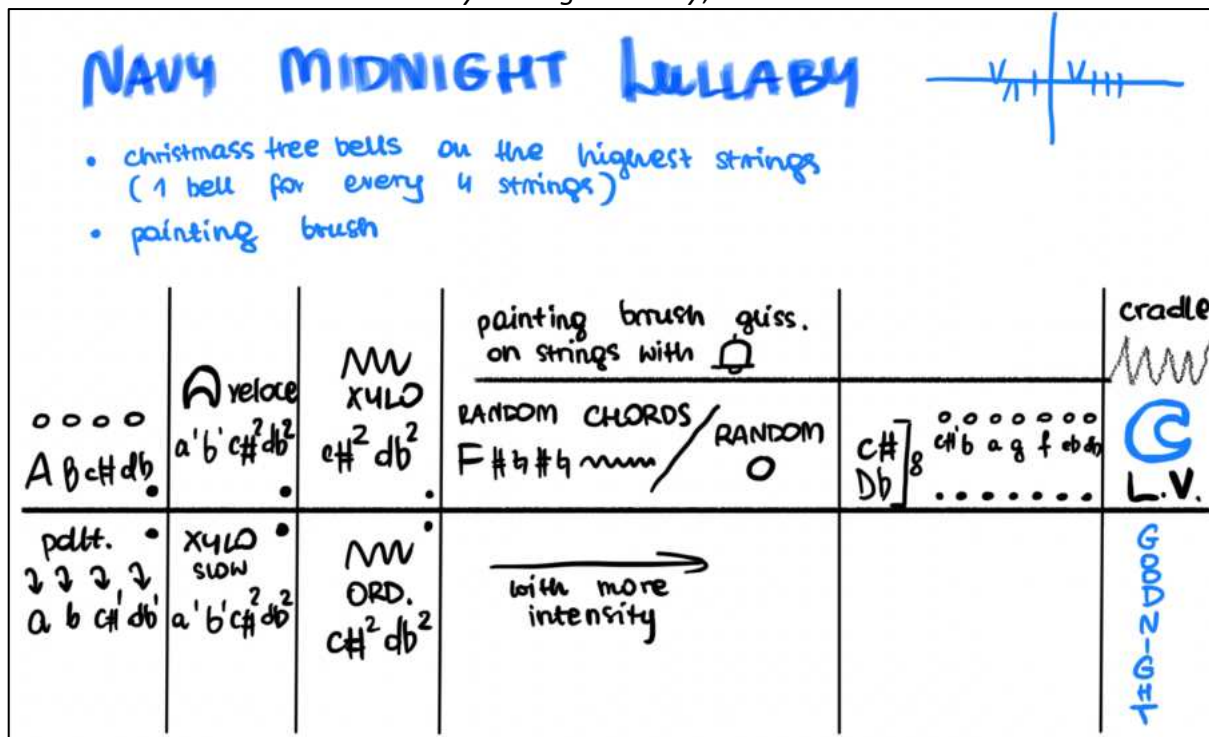 NAVY MIDNIGHT LULLABY
• christmass tree bells on the highest strings
(1 bell for every 4 strings)
• painting brush
A B c# db
veloce
a' b' c#² db²
XYLO
c#² db²
painting brush gliss.
on strings with
RANDOM CHORDS
F # ♮ # ♮
RANDOM
O
c#
Db
8
c#' b a g f eb db
cradle
C
L.V.
pdlt.
a b c#' db'
XYLO
SLOW
a' b' c#² db²
ORD.
c#² db²
with more
intensity
GOODNIGHT